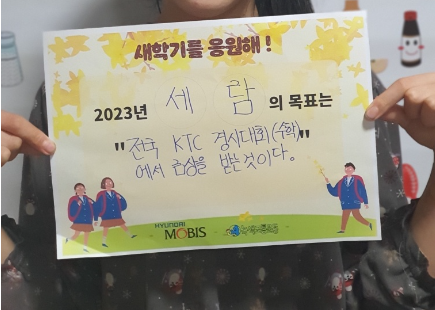 새학기를 응원해!
2023년 세람의 목표는
"전국 KTC 경시대회(수학)"
에서 금상을 받는것이다.
HYUNDAI
MOBIS